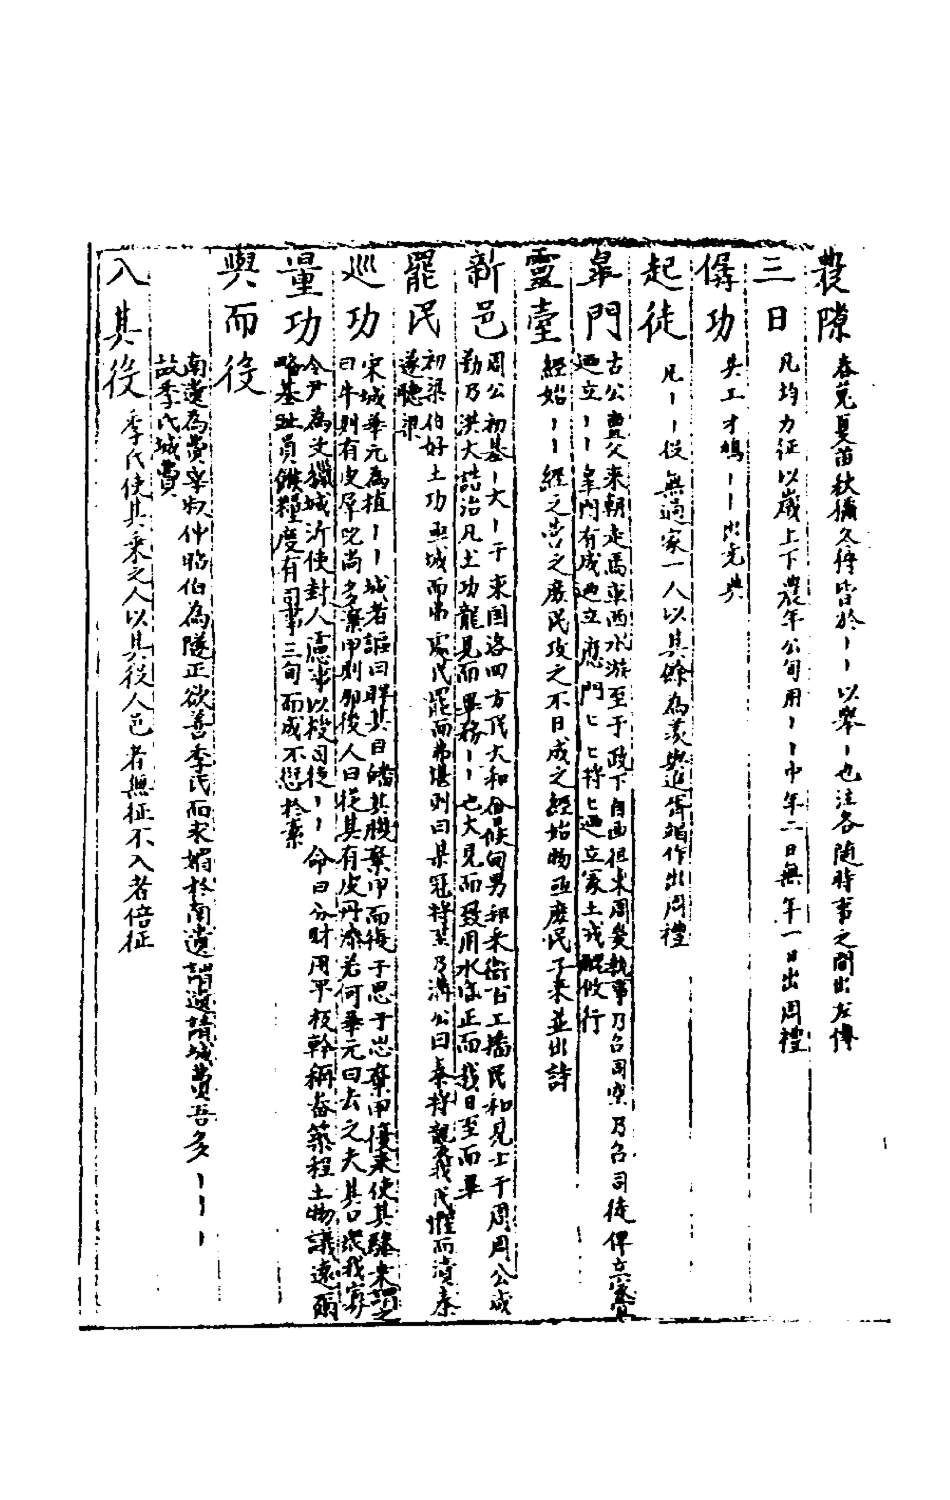 農隙
春蒐夏苗秋獮冬狩皆於丨丨以舉丨也注各隨時事之間出左傳
三日
凡均力征以歲上下農年公旬用丨丨中年二日無年一日出周禮
僝功
共工才鳩丨丨出堯典
起徒
凡丨丨役無過家一人以其餘為羨與追胥竭作出周禮
皐門
古公亶父来朝走馬率西水滸至于政下自西徂東周爰執事乃召司空乃召司徒俾立室
廼立丨丨皐門有成廼立應門匕匕將匕廼立冢土戎醜攸行
靈臺
經始丨丨經之營之庶民攻之不日成之經始勿亟庶民子来並出詩
新邑
周公初基丨大丨于東国洛四方民大和會侯甸男邦采衛百工播民和見士于周周公咸
勤乃洪大誥治凡土功龍見而畢務丨丨也火見而致用水昏正而栽日至而畢
罷民
初梁伯好土功亟城而弗處民罷而弗堪則曰某冦将至乃溝公曰秦将襲我民懼而潰秦
遂聽梁
巡功
宋城華元為植丨丨城者謳曰睅其目皤其腹棄甲而復于思于思棄甲復来使其驂乗謂之
曰牛則有皮犀兕尚多棄甲則那後人曰從其有皮丹漆若何華元曰去之夫其口衆我寡
量功
令尹為艾獵城沂使封人慮事以授司徒丨丨命曰分財用平板榦稱畚築程土物議遠爾
略基趾具餱糧度有司事三旬而成不愆於素
與而役
南遺為費宰叔仲昭伯為隧正欲善季氏而求媚於南遺謂遺請城費吾多丨丨丨
故季氏城費
入其役
季氏使其乗之人以其役人邑者無征不入者倍征